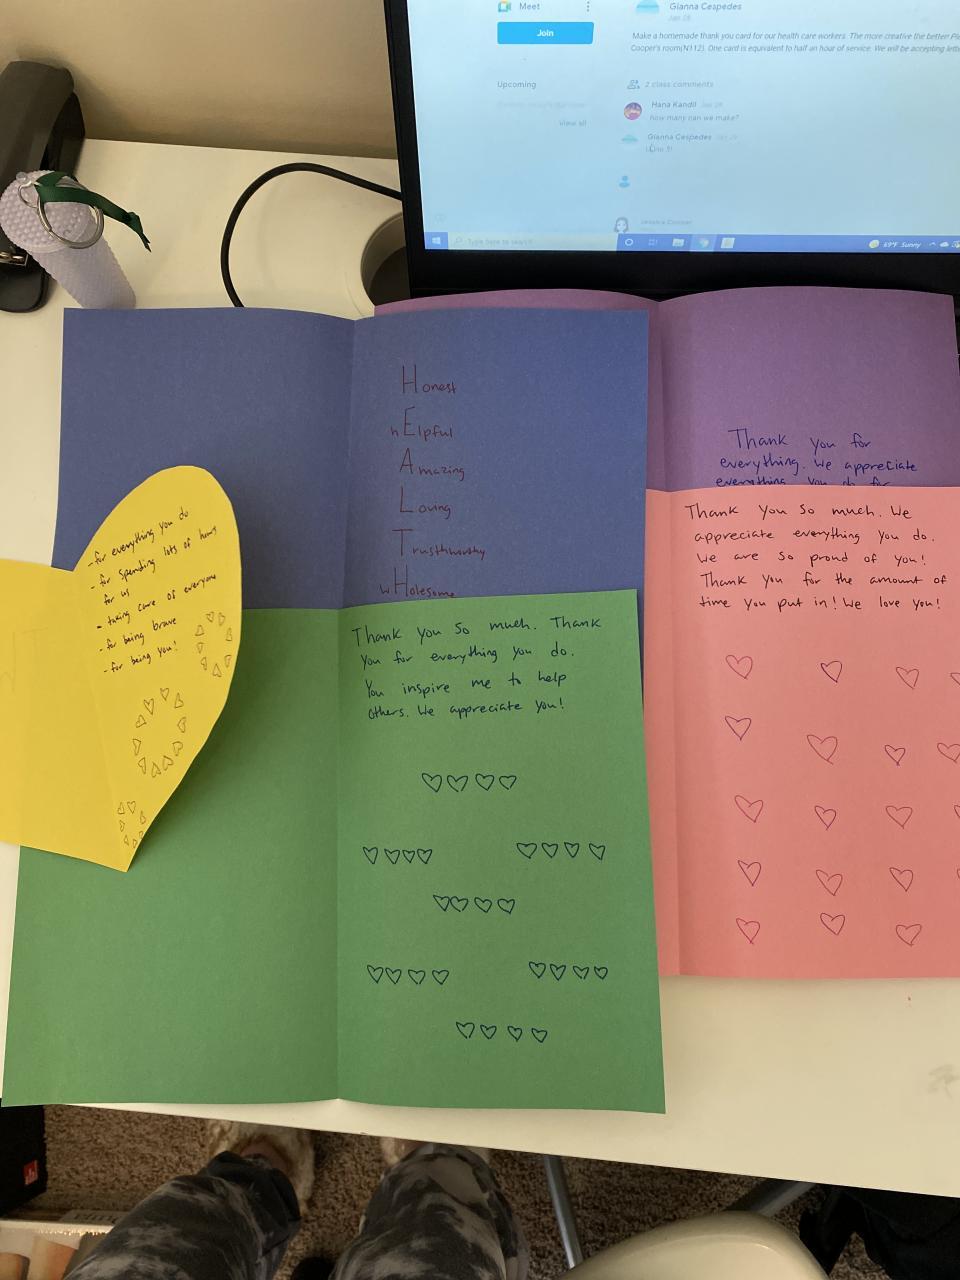 Meet
Join
Upcoming
View all
Gianna Cespedes
Jan 28
Make a homemade thank you card for our health care workers. The more creative the better!
Cooper's room(N112). One card is equivalent to half an hour of service. We will be accepting
2 class comments
Hana Kandil Jan 28
how many can we make?
Gianna Cespedes Jan 29
Jessica Cooper
Type here to search
69°F Sunny
Honest
hElpful
Amazing
Loving
Trusthworthy
wHolesome
Thank you for
everything. We appreciate
everything you do for
- for everything you do
- for spending lots of hours
for us
- taking care of everyone
- for being brave
- for being you!
Thank you so much. Thank
you for everything you do.
You inspire me to help
others. We appreciate you!
Thank you so much. We
appreciate everything you do.
We are so proud of you!
Thank you for the amount of
time you put in! We love you!